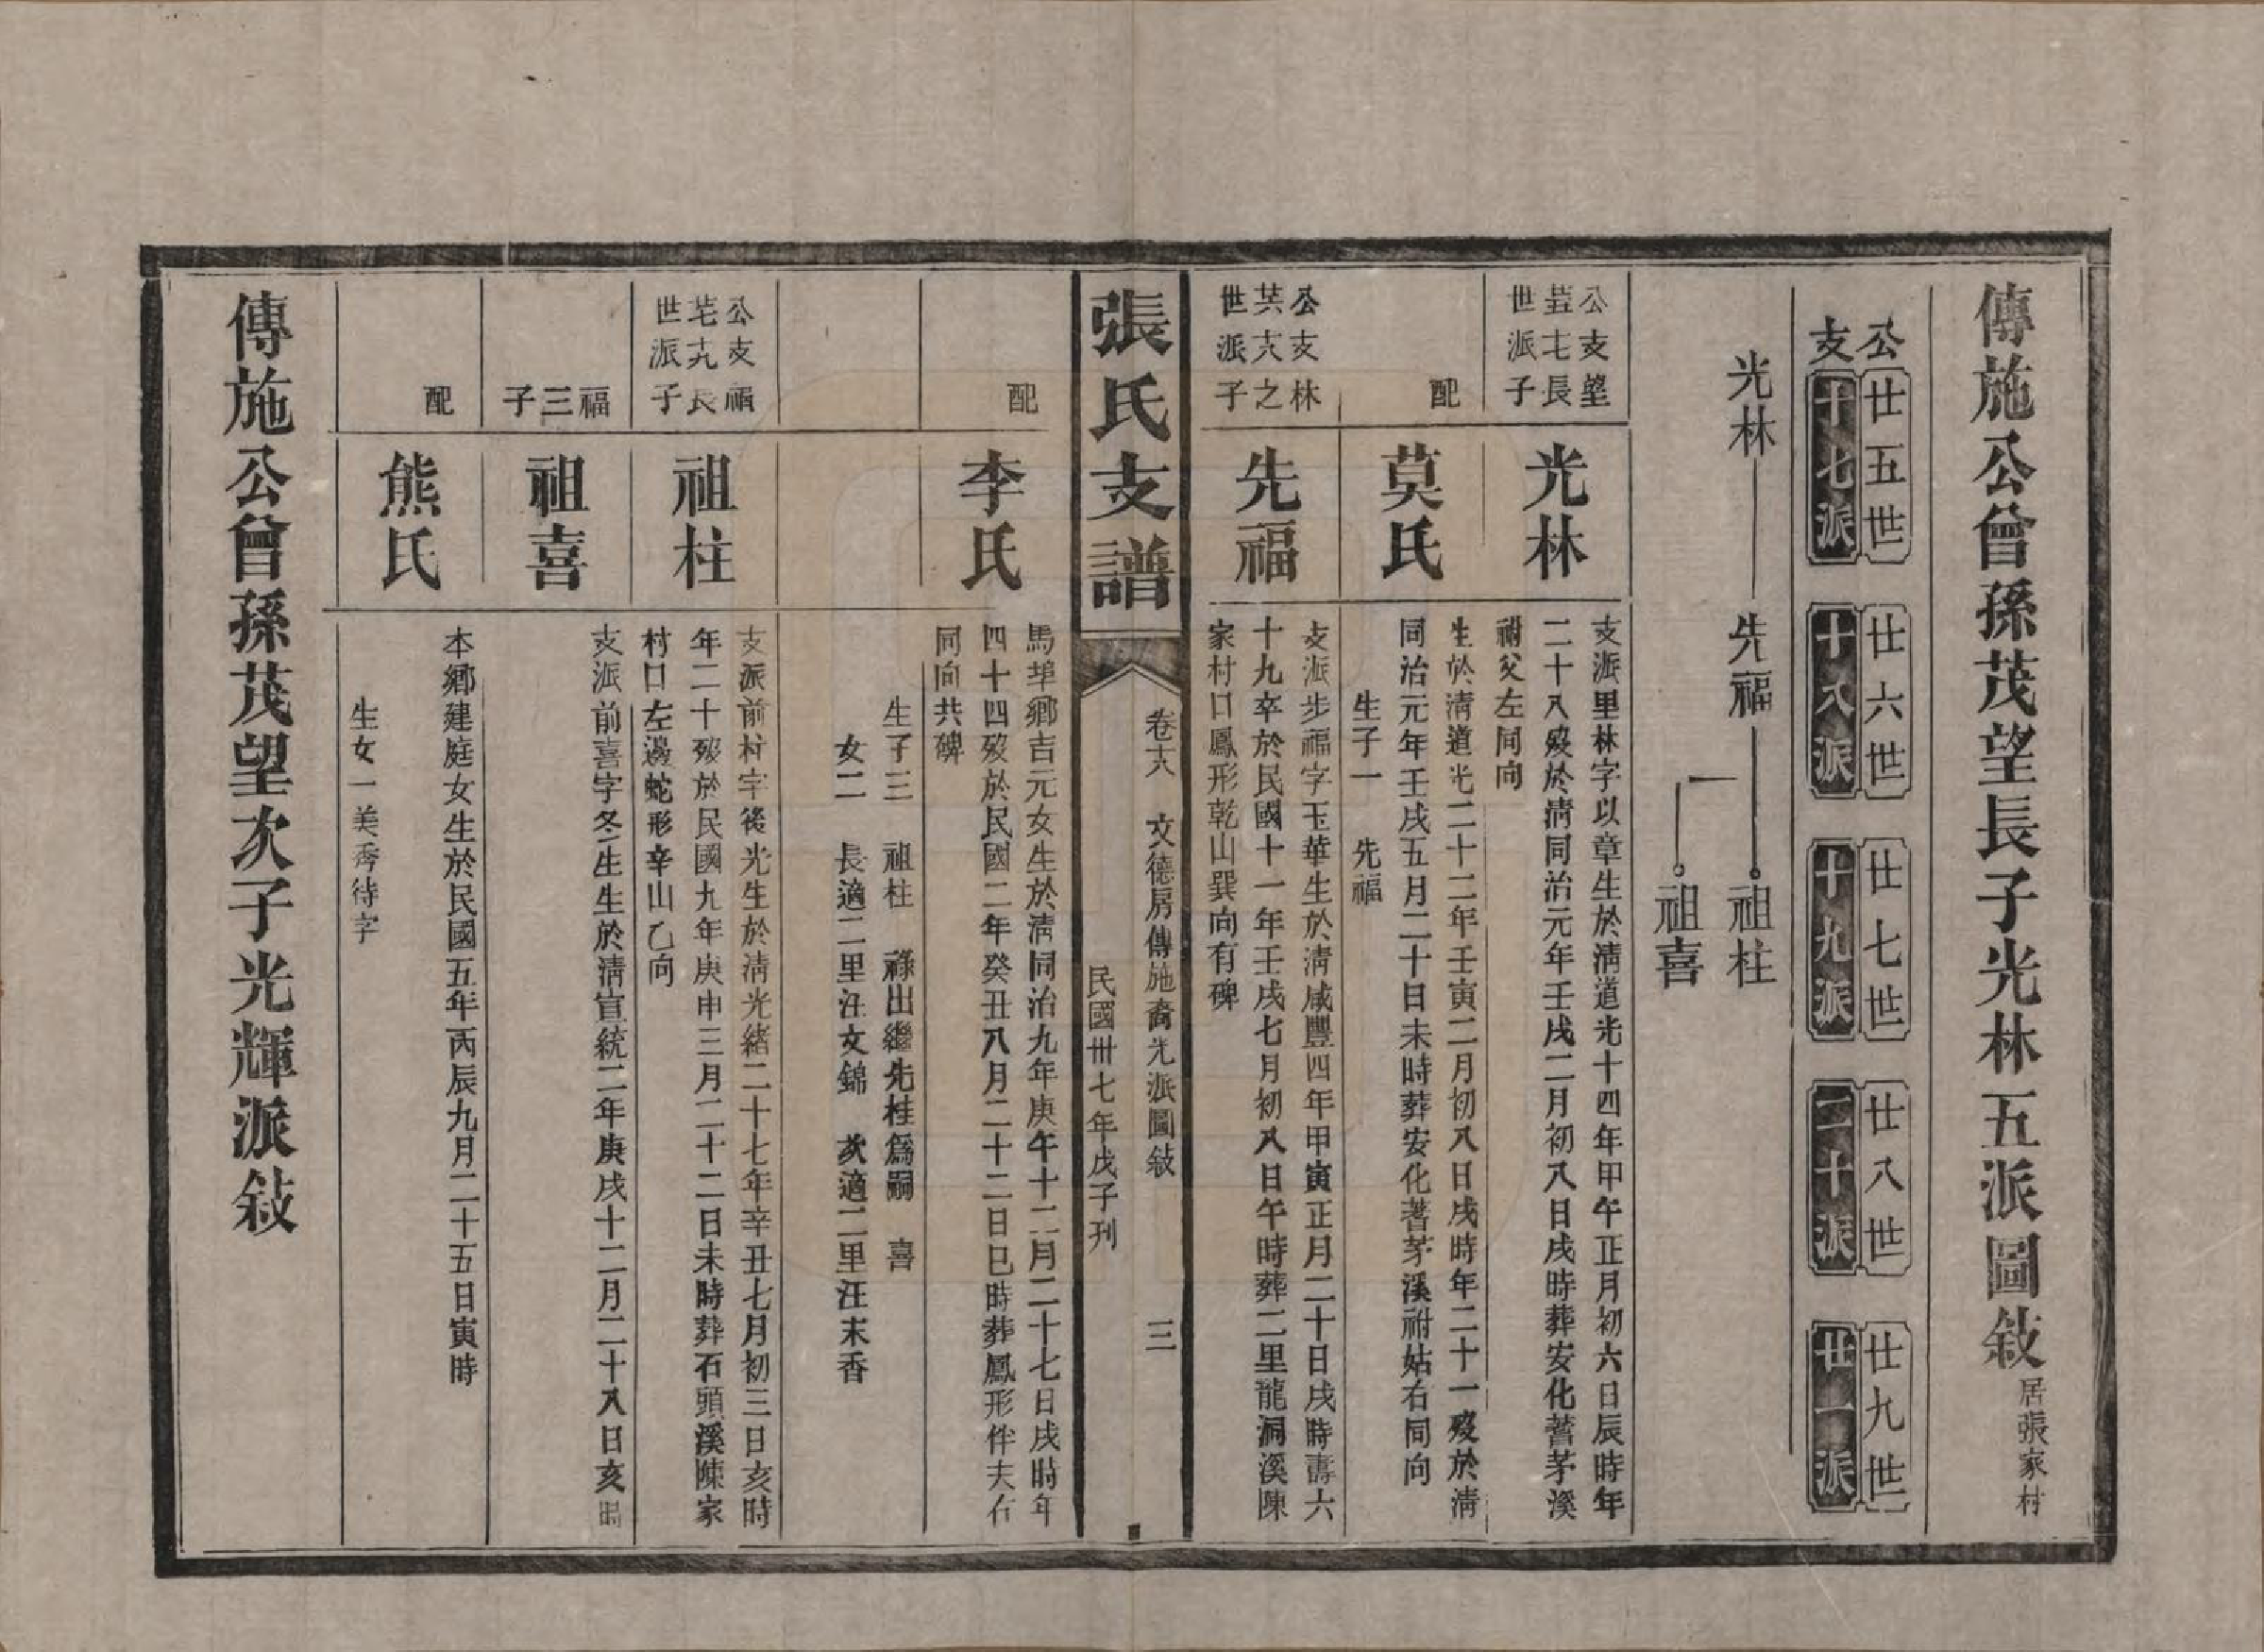 傳施公曾孫茂望長子光林五派圖敍居張家村
公支
廿五世 十七派
廿六世 十八派
廿七世 十九派
廿八世 二十派
廿九世 廿一派
光林 先福 祖柱
祖喜
公支望
廿五十七長
世派子
光林
支派里林字以章生於清道光十四年甲午正月初六日辰時年
二十八歿於清同治元年壬戌二月初八日戌時葬安化蓍茅溪
祔父左同向
配
莫氏
生於清道光二十二年壬寅二月初八日戌時年二十一歿於清
同治元年壬戌五月二十日未時葬安化蓍茅溪祔姑右同向
生子一 先福
公支林
廿六十八之
世派子
先福
支派步福字玉華生於清咸豐四年甲寅正月二十日戌時壽六
十九卒於民國十一年壬戌七月初八日午時葬二里龍洞溪陳
家村口鳳形乾山巽向有碑
張氏支譜
卷十八 文德房傳施裔光派圖敍 三
民國卅七年戊子刊
配
李氏
馬埠鄉吉元女生於清同治九年庚午十二月二十七日戌時年
四十四歿於民國二年癸丑八月二十二日巳時葬鳳形伴夫右
同向共碑
生子三 祖柱 祿出繼先桂為嗣 喜
女二 長適二里汪文錦 次適二里汪末香
公支福
廿七十九長
世派子
祖柱
支派前柱字後光生於清光緒二十七年辛丑七月初三日亥時
年二十歿於民國九年庚申三月二十二日未時葬石頭溪陳家
村口左邊蛇形辛山乙向
福三子
祖喜
支派前喜字冬生生於清宣統二年庚戌十二月二十八日亥時
配
熊氏
本鄉建庭女生於民國五年丙辰九月二十五日寅時
生女一美秀待字
傳施公曾孫茂望次子光輝派敍